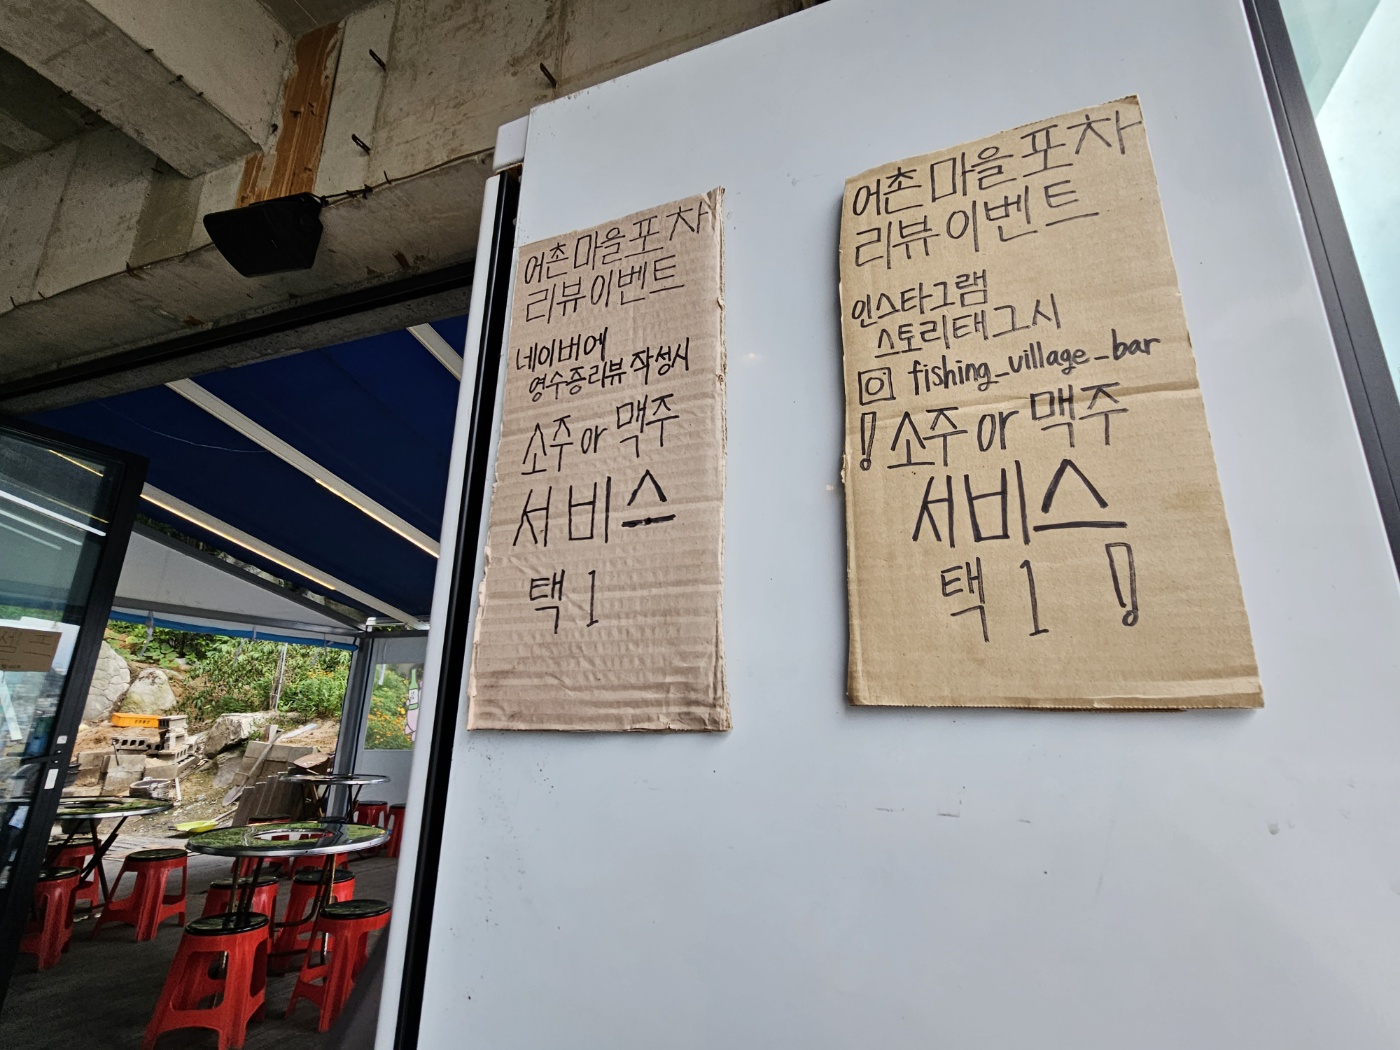 어촌마을포차
리뷰이벤트
네이버에
영수증리뷰 작성시
소주 or 맥주
서비스
택1
어촌마을포차
리뷰이벤트
인스타그램
스토리태그시
fishing_village_bar
! 소주 or 맥주
서비스
택1 !